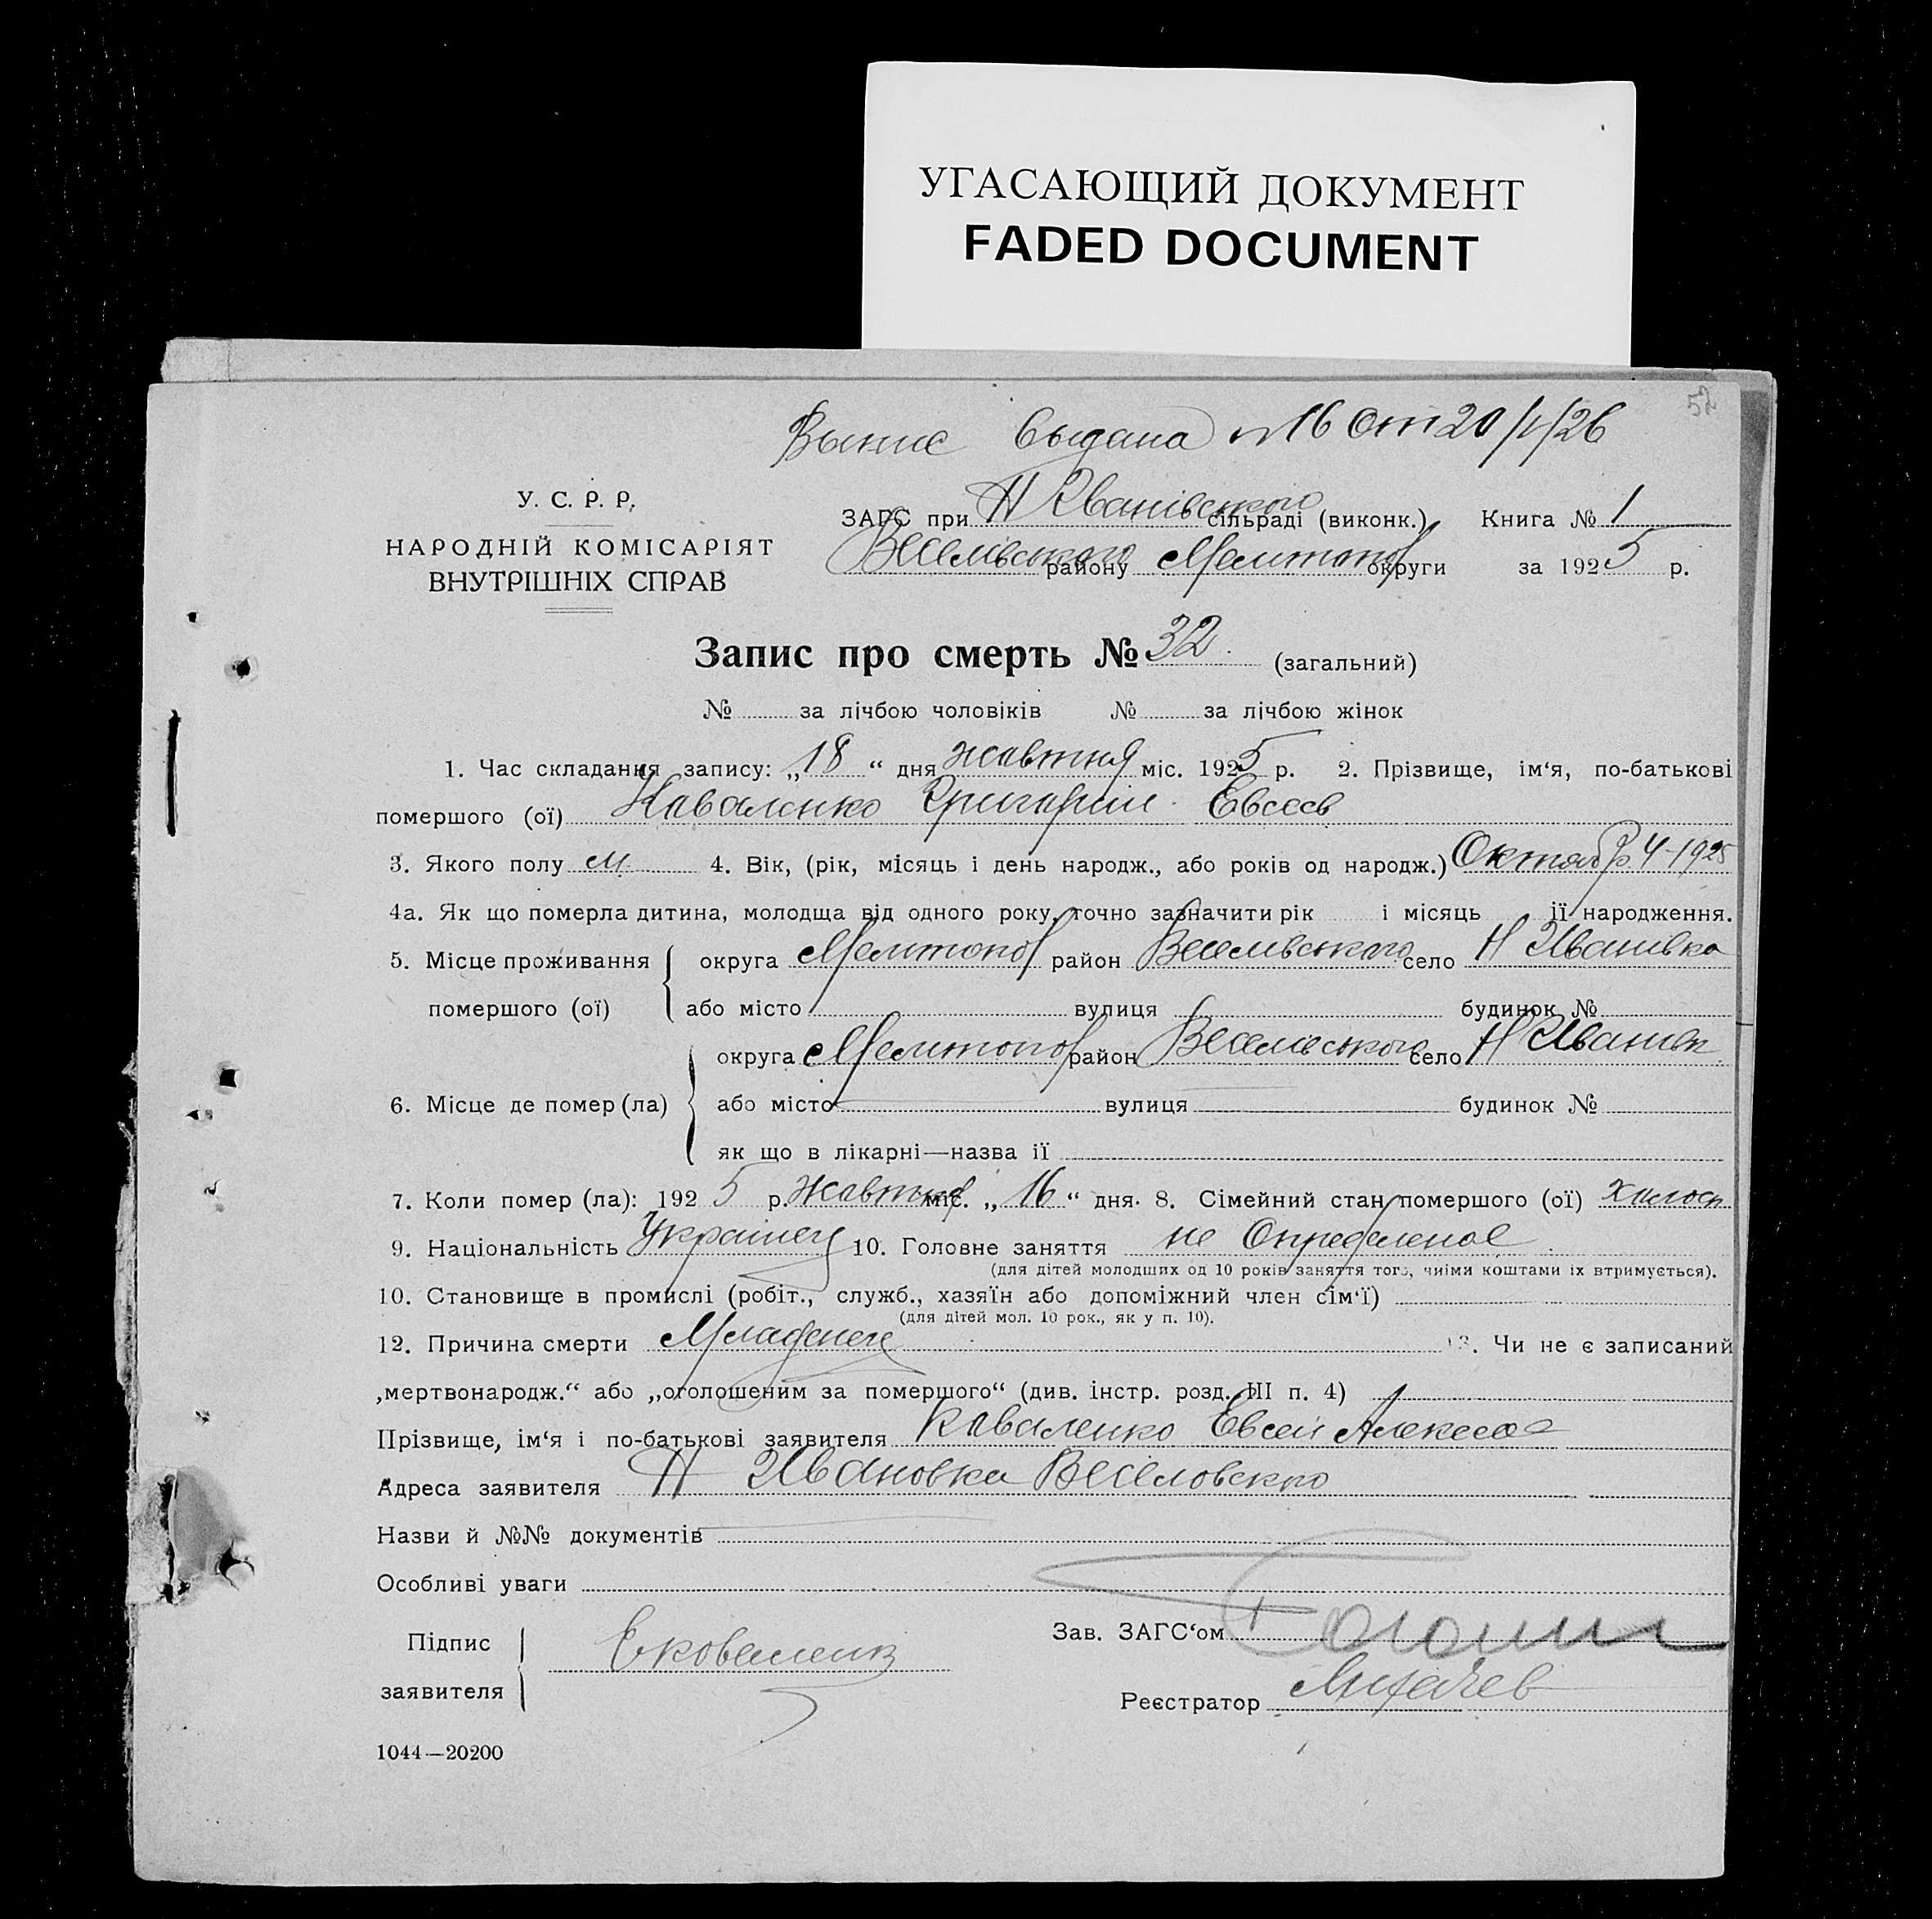 УГАСАЮЩИЙ ДОКУМЕНТ
FADED DOCUMENT
52
Выпис выдана №16 от 20/I/26
У. С. Р. Р.
НАРОДНІЙ КОМІСАРІЯТ
ВНУТРІШНІХ СПРАВ
ЗАГС при Н Іванівського сільраді (виконк.) Книга № 1
Веселівського району Мелитопол округи за 1925 р.
Запис про смерть № 32. (загальний)
№ за лічбою чоловіків № за лічбою жінок
1. Час складання запису: „18“ дня жовтня міс. 1925 р. 2. Прізвище, ім‘я, по-батькові
помершого (ої) Коваленко Григорий Евсеев
3. Якого полу м. 4. Вік, (рік, місяць і день народж., або років од народж.) Октябр. 4-1925
4а. Як що померла дитина, молодща від одного року, точно зазначити рік і місяць її народження.
5. Місце проживання округа Мелитопол район Веселівського село Н Иванівка
помершого (ої) або місто вулиця будинок №
округа Мелитопол район Веселівського село Н Иванівк
6. Місце де помер (ла) або місто вулиця будинок №
як що в лікарні—назва її
7. Коли помер (ла): 1925 р. Жовтня міс. „16“ дня. 8. Сімейний стан помершого (ої) холост
9. Національність Українец 10. Головне заняття не Определеное
(для дітей молодших од 10 років заняття того, чиїми коштами їх втримується).
10. Становище в промислі (робіт., служб., хазяїн або допоміжний член сім‘ї)
(для дітей мол. 10 рок., як у п. 10).
12. Причина смерти Младенец 13. Чи не є записаний
„мертвонародж.“ або „оголошеним за помершого“ (див. інстр. розд. III п. 4)
Прізвище, ім‘я і по-батькові заявителя Коваленко Евсей Алексеев
Адреса заявителя Н Ивановка Веселовскго
Назви й №№ документів
Особливі уваги
Підпис
заявителя Е Коваленк
Зав. ЗАГС‘ом
Реєстратор
1044—20200